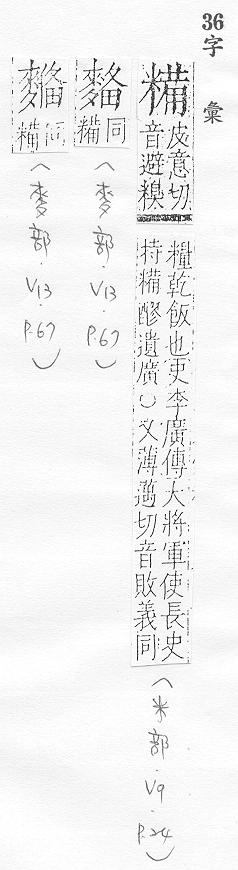 36字 彙
糒
皮意切
音避糗
糧乾飯也史李廣傳大將軍使長史
持糒醪遺廣○又薄邁切音敗義同
(米部.V9.P.24)
同
糒
(麥部.V13.P.67)
同
糒
(麥部.V13.P.67)